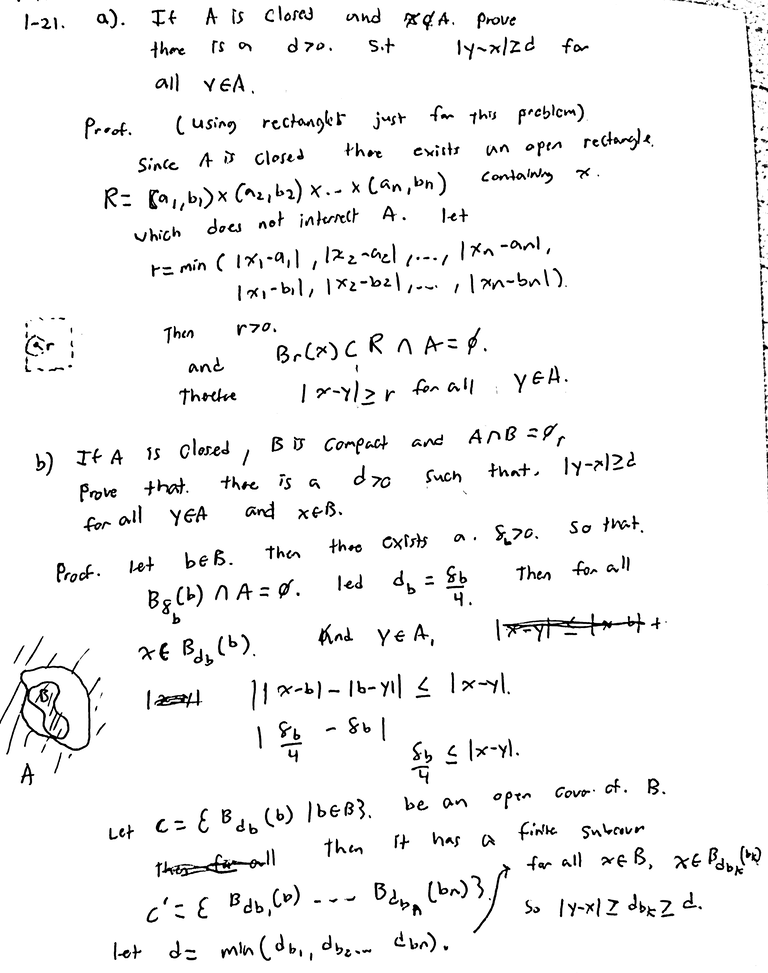 1-21. a). If A is closed and x∉A. Prove
there is a d>0. s.t |y-x|≥d for
all y∈A.
Proof. (using rectangles just for this problem)
Since A is closed there exists an open rectangle.
R= (a₁,b₁)×(a₂,b₂)×...×(aₙ,bₙ) containing x.
which does not intersect A. let
r=min (|x₁-a₁|, |x₂-a₂|,..., |xₙ-aₙ|,
|x₁-b₁|, |x₂-b₂|,..., |xₙ-bₙ|).
Then r>0.
r
and Bᵣ(x) ⊂ R ∩ A = ∅.
|x-y|≥r for all y∈A.
b) If A is closed, B is compact and A∩B=∅,
Prove that. there is a d>0 such that. |y-x|≥d
for all y∈A and x∈B.
Proof. let b∈B. then there exists a. δ_b>0. so that.
B_{δ_b}(b) ∩ A = ∅. led d_b = δ_b/4. Then for all
x∈ B_{d_b}(b). And y∈A,
||x-b| - |b-y|| ≤ |x-y|.
|δ_b/4 - δ_b|
δ_b/4 ≤ |x-y|.
B
A
Let C = { B_{d_b}(b) | b∈B}. be an open cover of. B.
then it has a finite subcover
C' = { B_{d_{b₁}}(b) --- B_{d_{bₙ}}(bₙ)}.
let d = min(d_{b₁}, d_{b₂}... d_{bₙ}).
for all x∈B, x∈B_{d_{b_k}}(b_k)
so |y-x| ≥ d_{b_k} ≥ d.